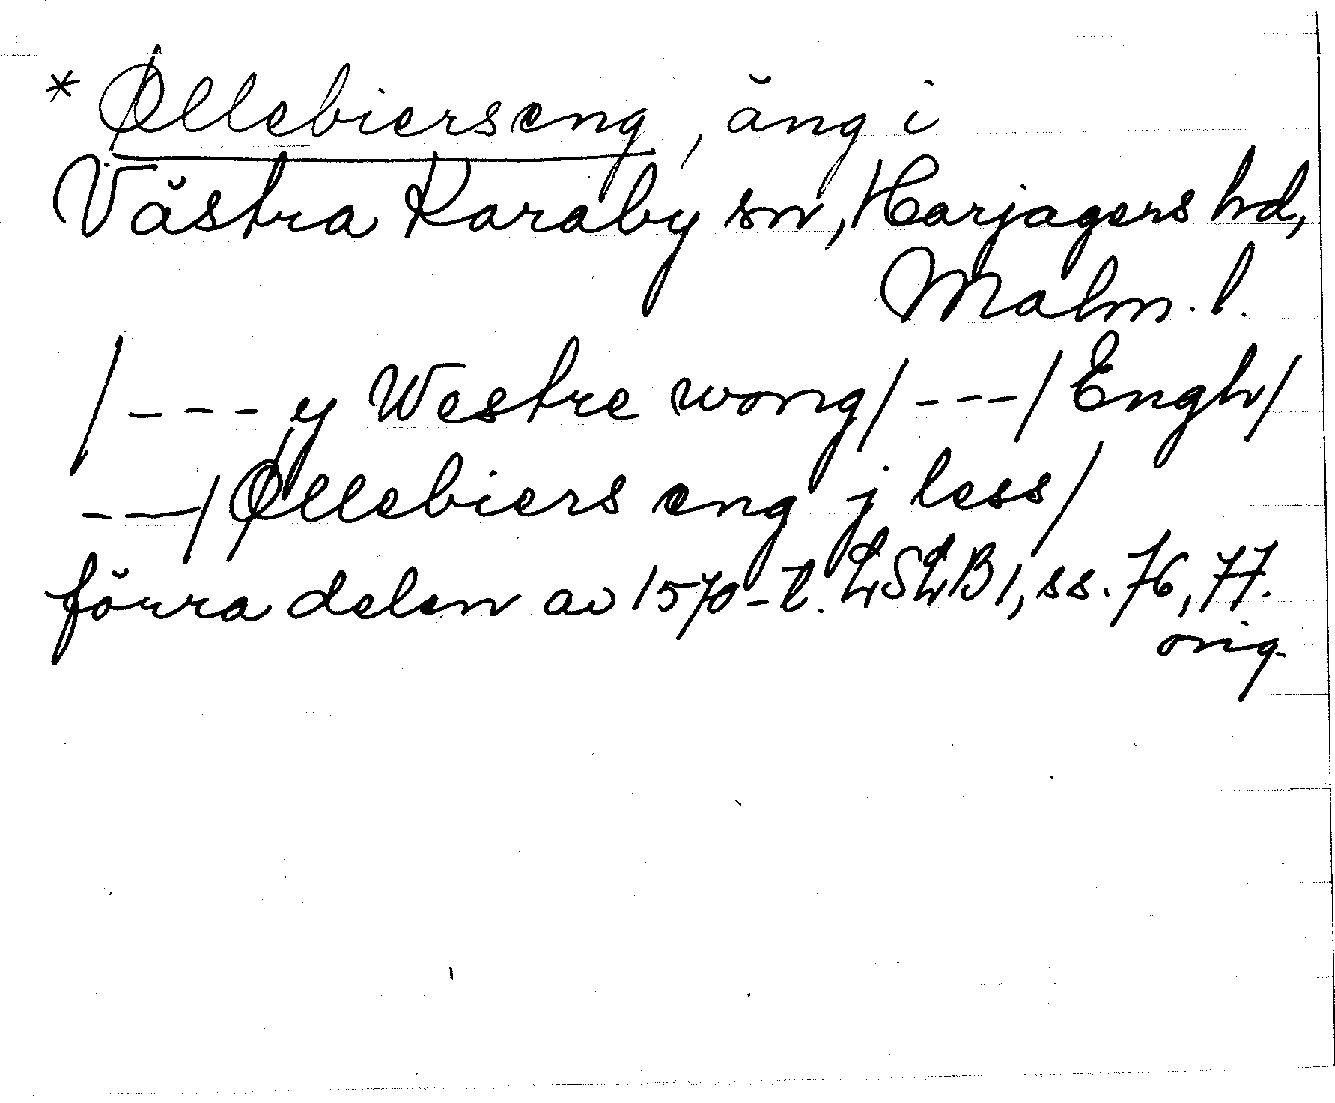 * Øllebierseng, äng i
Västra Karaby sn, Harjagers hd,
Malm. l.
/---y Westre wong/---/Engh/
---/Øllebiers eng j less/
förra delen av 1570-t. LSLB1, ss. 76, 77.
orig.